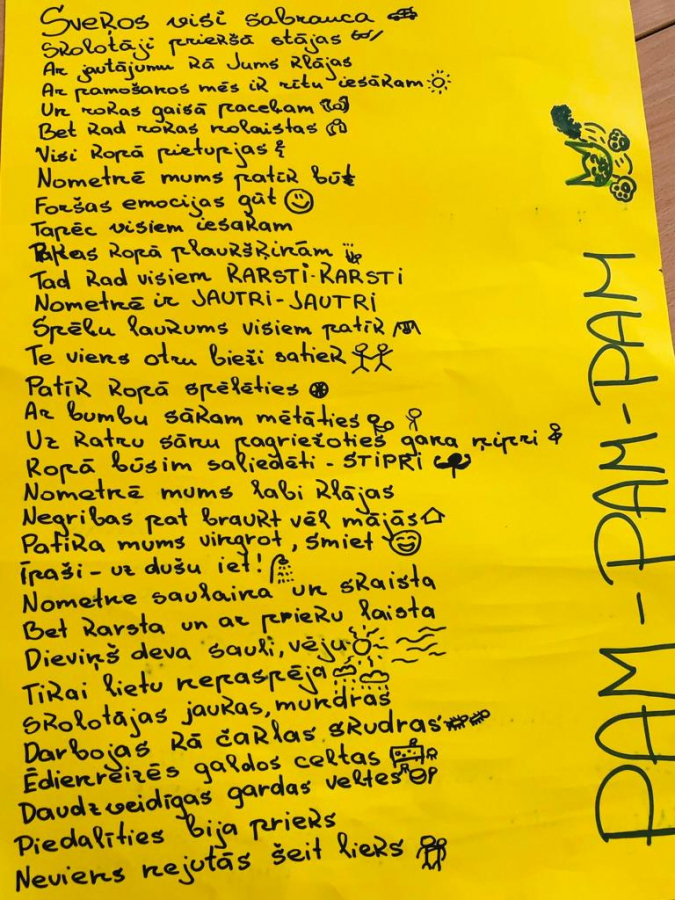 Svekos visi sabrauca
Skolotāji priekšā stājas
Ar jautājumu kā Jums klājas
Ar pamošanos mēs ik rītu iesākam
Un rokas gaisā paceļam
Bet kad rokas nolaistas
Visi kopā pietupjas
Nometnē mums patīk būt
Foršas emocijas gūt
Tapēc visiem iesakam
kopā plaukšķinām
Tad kad visiem KARSTI-KARSTI
Nometnē ir JAUTRI-JAUTRI
Spēļu laukums visiem patīk
Te viens otru bieži satiek
Patīk kopā spēlēties
Ar bumbu sākam mētāties
Uz katru sānu pagriežoties gana ņipri
Kopā būsim saliedēti - STIPRI
Nometnē mums labi klājas
Negribas pat braukt vēl mājās
Patika mums vingrot, smiet
īpaši - uz dušu iet!
Nometne saulaina un skaista
Bet karsta un ar prieku laista
Dieviņš deva sauli, vēju
Tikai lietu nepaspēja
Skolotājas jaukas, mundras
Darbojas kā čaklas skudras
Ēdienreizēs galdos celtas
Daudzveidīgas gardas veltes
Piedalīties bija prieks
Neviens nejutās šeit lieks
PAM-PAM-PAM